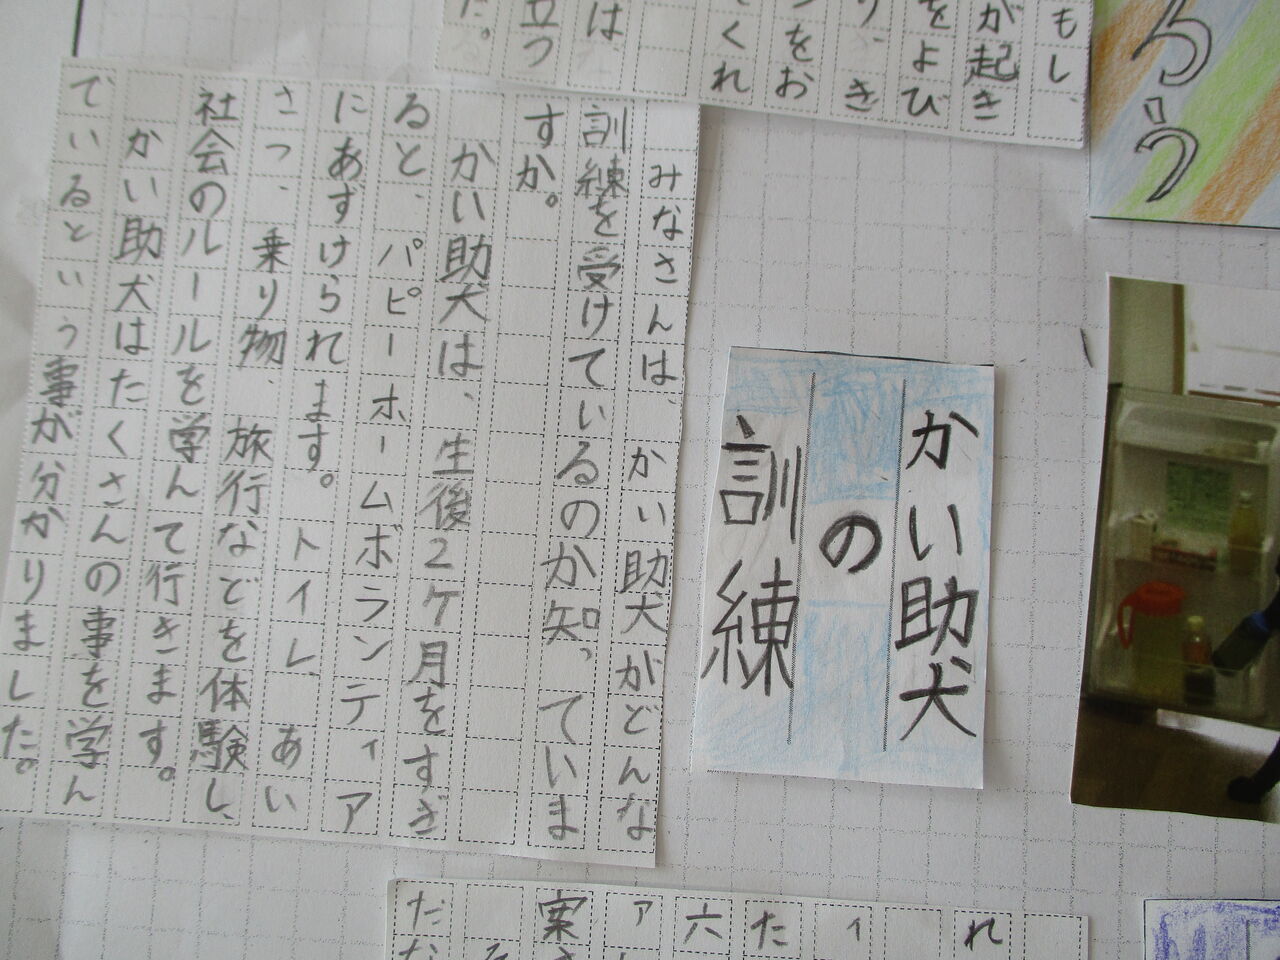 ろう
もし、
が起き
をよび
り、き
ンをお
てくれ
は
立つ
た。
かい助犬
の
訓練
みなさんは、かい助犬がどんな
訓練を受けているのか知っていま
すか。
かい助犬は、生後2ケ月をすぎ
ると、パピーホームボランティア
にあずけられます。トイレ、あい
さつ、乗り物、旅行などを体験し、
社会のルールを学んで行きます。
かい助犬はたくさんの事を学ん
でいるという事が分かりました。
れ
ィ
た
六
ア
案
だ